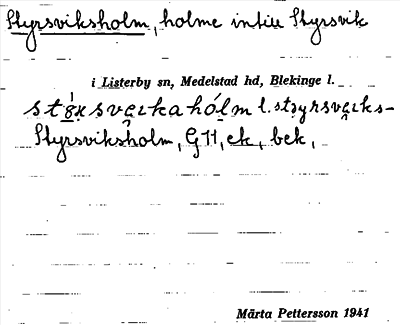 Styrsviksholm, holme intill Styrsvik
i Listerby sn, Medelstad hd, Blekinge l.
l.
Styrsviksholm, GH, ek, bek,
Märta Pettersson 1941